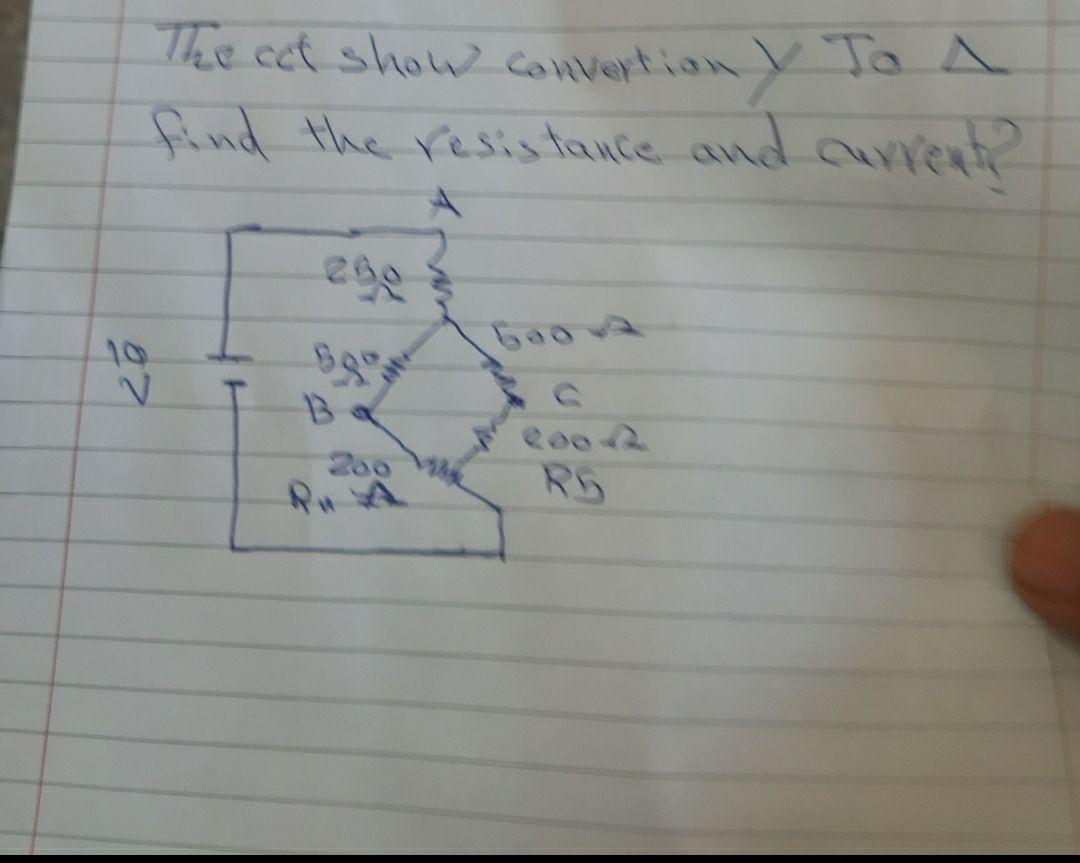 The cct show convertion Y To Δ
find the resistance and current?
A
250
Ω
500 Ω
500
Ω
10
V
B
C
200 Ω
200
R5
R4 Ω